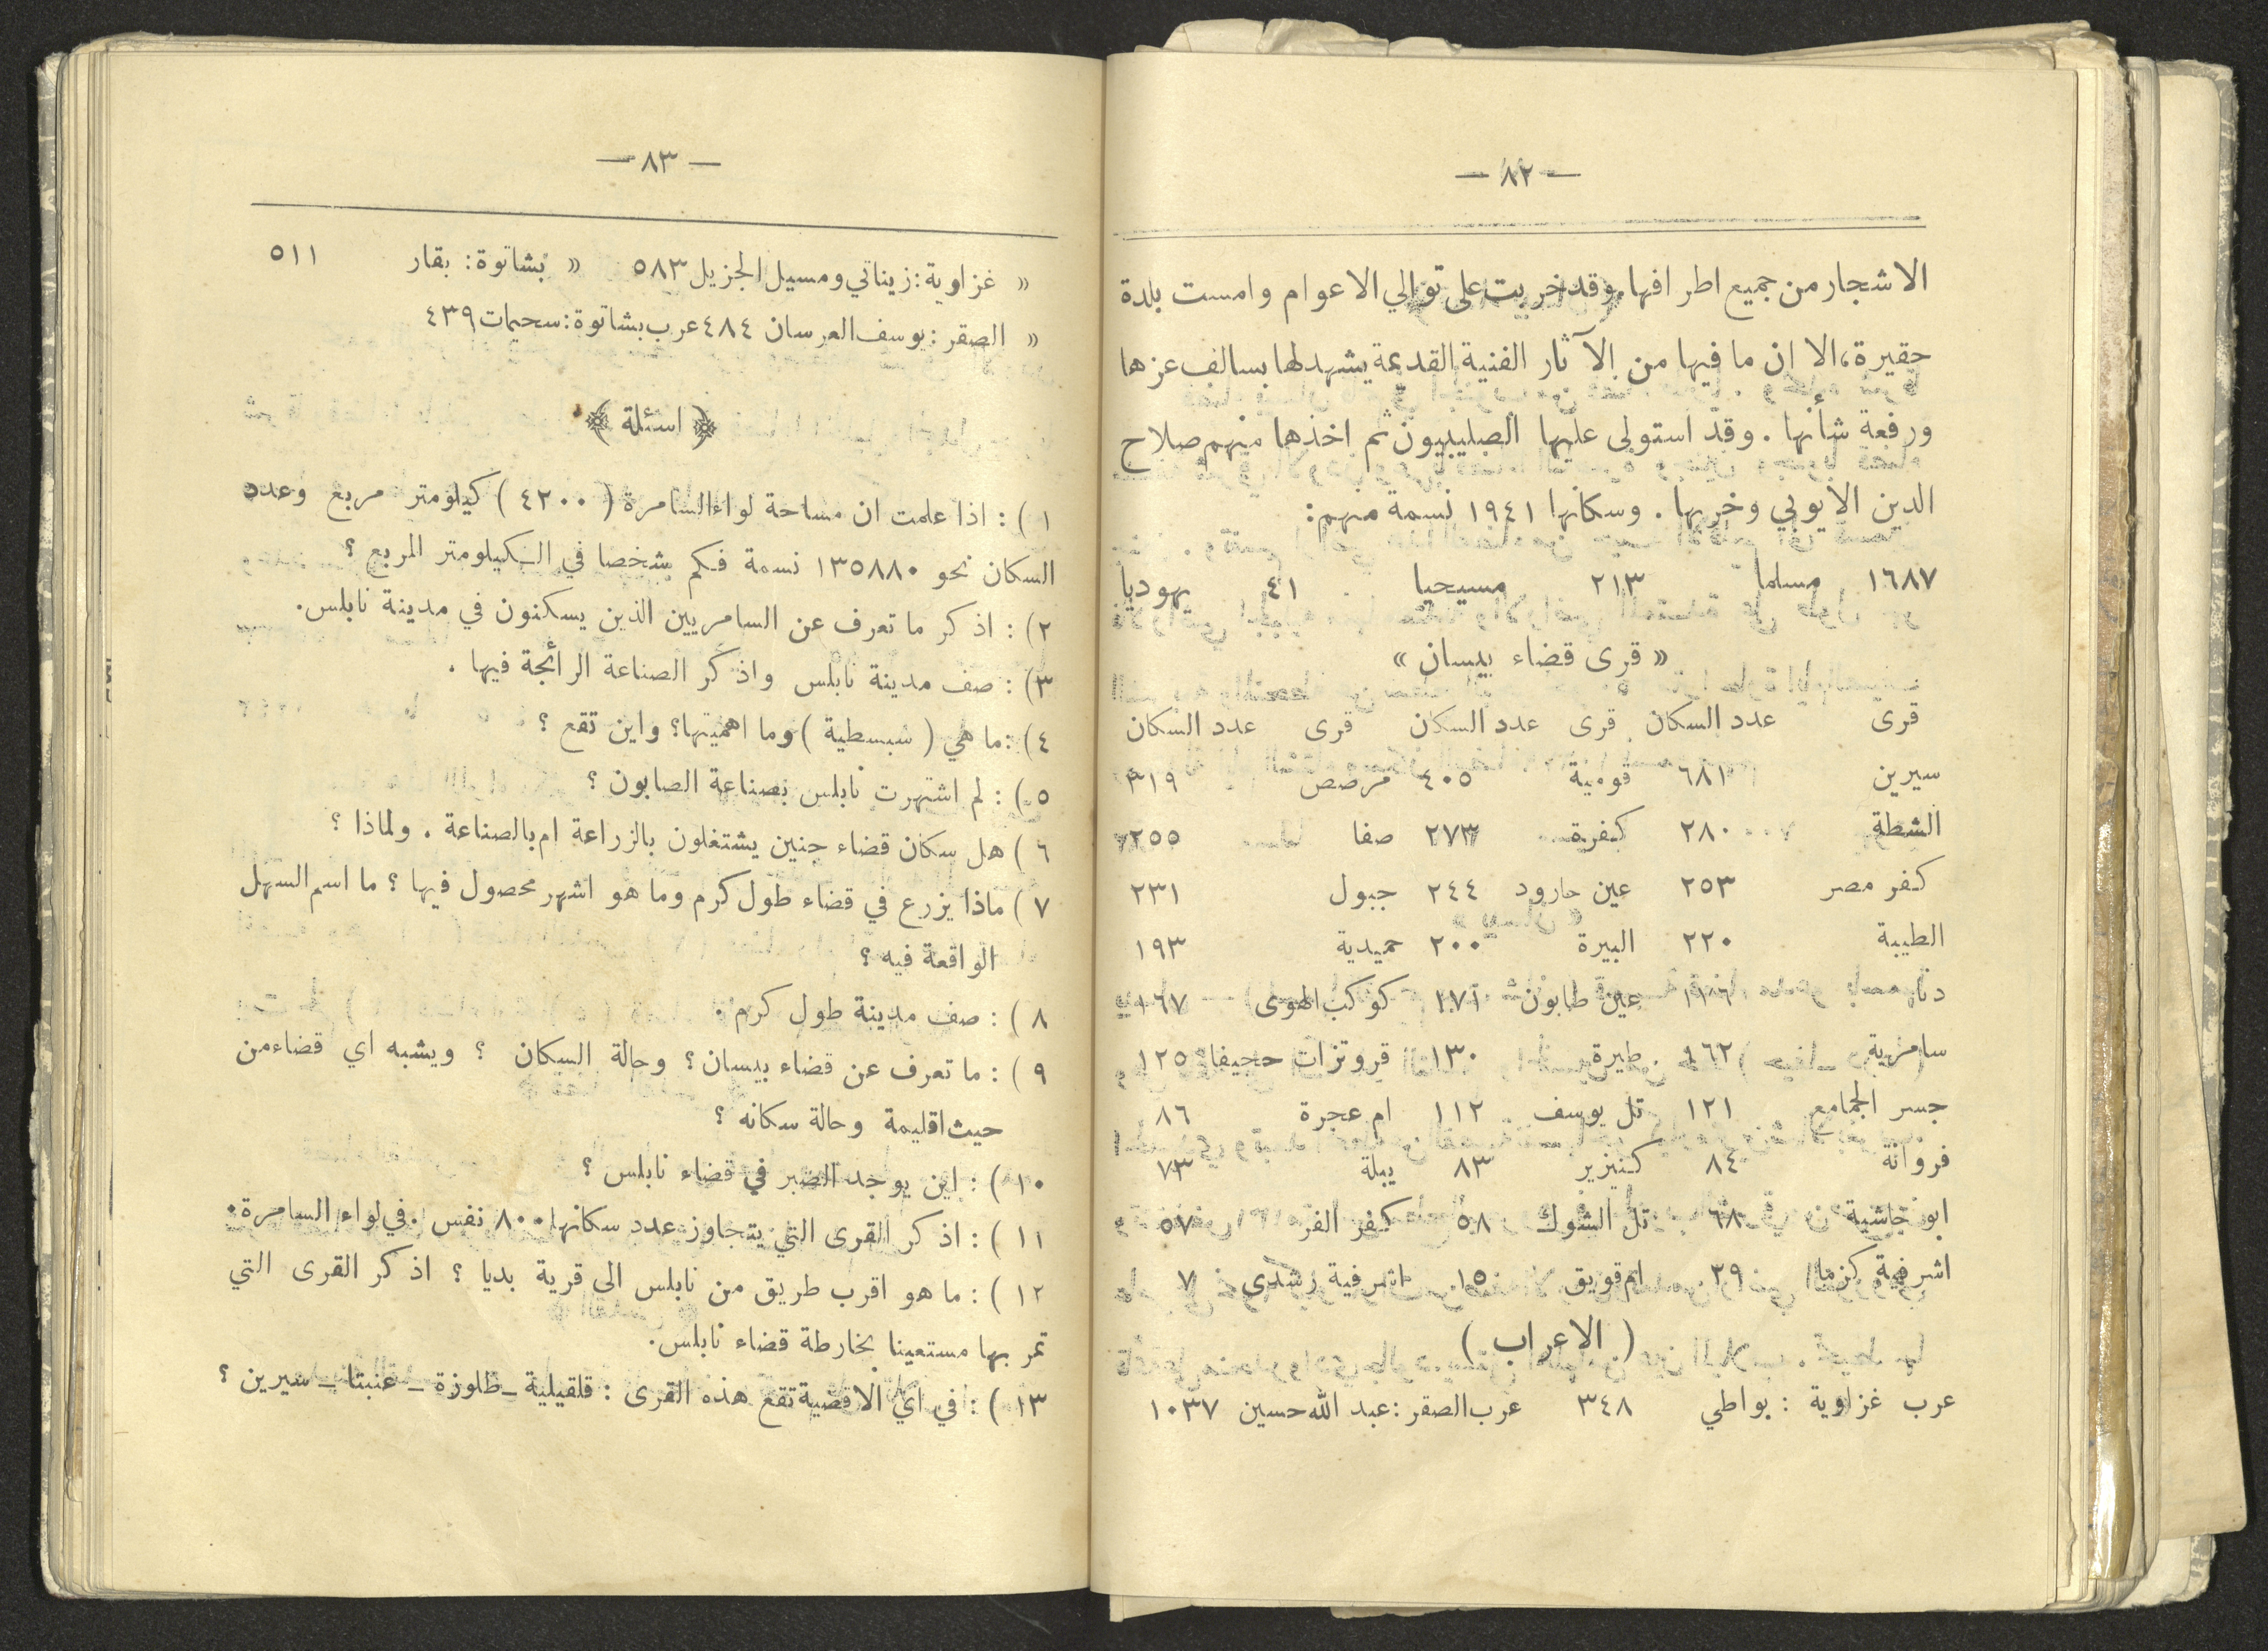 — ٨٢ —
الاشجار من جميع اطرافها. وقد خربت على توالي الاعوام وامست بلدة
حقيرة، الا ان ما فيها من الآثار الفنية القديمة يشهد لها بسالف عزها
ورفعة شأنها . وقد استولى عليها الصليبيون ثم اخذها منهم صلاح
الدين الايوبي وخربها . وسكانها ١٩٤١ نسمة منهم:
١٦٨٧ مسلما ٢١٣ مسيحيا ٤١ يهوديا
« قرى قضاء بيسان »
قرى عدد السكان قرى عدد السكان قرى عدد السكان
سيرين ٦٨١ قومية ٤٠٥ مرصص ٣١٩
الشطة ٢٨٠ كفرة ٢٧٣ صفا ٢٥٥
كفر مصر ٢٥٣ عين حارود ٢٤٤ جبول ٢٣١
الطيبة ٢٢٠ البيرة ٢٠٠ حميدية ١٩٣
دنا عين طابون كوكب الهوى ١٦٧
سامرية ١٦٢ طيرة ١٣٠ قروتزات حجيفا ١٢٥
جسر الجامع ١٢١ تل يوسف ١١٢ ام عجرة ٨٦
فروانة ٨٤ كنيزير ٨٣ يبلة ٧٣
ابو خاشية ٦٨ تل الشوك ٥٨ كفر الفر ٥٧
اشرفية كزما ٢٩ ام قويق ١٥ اشرفية رشدي ٧
( الاعراب )
عرب غزاوية : بواطي ٣٤٨ عرب الصقر : عبد الله حسين ١٠٣٧
— ٨٣ —
« غزاوية : زيناتي ومسيل الجزيل ٥٨٣ « بشاتوة : بقار ٥١١
« الصقر : يوسف العرسان ٤٨٤ عرب بشاتوة : سحيمات ٤٣٩
﴿ اسئلة ﴾
١ ) : اذا علمت ان مساحة لواء السامرة ( ٤٢٠٠ ) كيلومتر مربع وعدد
السكان نحو ١٣٥٨٨٠ نسمة فكم شخصا في الكيلومتر المربع ؟
٢) : اذكر ما تعرف عن السامريين الذين يسكنون في مدينة نابلس.
٣) : صف مدينة نابلس واذكر الصناعة الرائجة فيها .
٤) : ما هي ( سبسطية ) وما اهميتها؟ واين تقع ؟
٥ ) : لم اشتهرت نابلس بصناعة الصابون ؟
٦ ) هل سكان قضاء جنين يشتغلون بالزراعة ام بالصناعة . ولماذا ؟
٧ ) ماذا يزرع في قضاء طول كرم وما هو اشهر محصول فيها ؟ ما اسم السهل
الواقعة فيه ؟
٨ ) : صف مدينة طول كرم .
٩ ) : ما تعرف عن قضاء بيسان ؟ وحالة السكان ؟ ويشبه اي قضاء من
حيث اقليمة وحالة سكانه ؟
١٠ ) : اين يوجد الصبر في قضاء نابلس ؟
١١ ) : اذكر القرى التي يتجاوز عدد سكانها ٨٠٠ نفس . في لواء السامرة.
١٢ ) : ما هو اقرب طريق من نابلس الى قرية بديا ؟ اذكر القرى التي
تمر بها مستعينا بخارطة قضاء نابلس.
١٣ ) : في اي الاقضية تقع هذه القرى : قلقيلية _ طلوزة _ عنبتا _ سيرين ؟